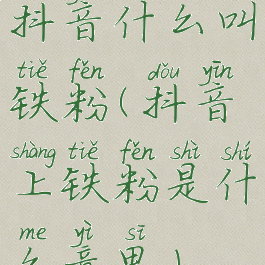 抖音什么叫
tiě fěn dǒu yīn
铁粉(抖音
shàng tiě fěn shì shí
上铁粉是什
me yì sī
么意思)